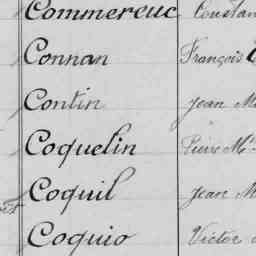 Commereuc Constan
Connan François
Contin Jean M
Coquelin Pierre M
Coquil Jean M
Coquio Victor